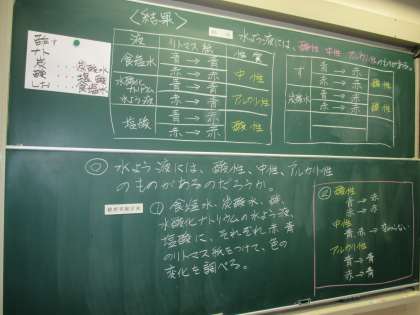 〈結果〉
水よう液には、酸性、中性、アルカリ性のものがある。
液 リトマス紙 性質
食塩水 青→青 赤→赤 中性
水酸化ナトリウム水よう液 青→青 赤→青 アルカリ性
塩酸 青→赤 赤→赤 酸性
す 青→赤 赤→赤 酸性
炭酸水 青→赤 赤→赤 酸性
炭酸水
塩酸
食塩水
◎ 水よう液には、酸性、中性、アルカリ性
のものがあるのだろうか。
① 食塩水、炭酸水、酢、
水酸化ナトリウムの水よう液、
塩酸に、それぞれ赤青
のリトマス紙をつけて、色の
変化を調べる。
酸性
青→赤
赤→赤
中性
青、赤→変わらない
アルカリ性
青→青
赤→青